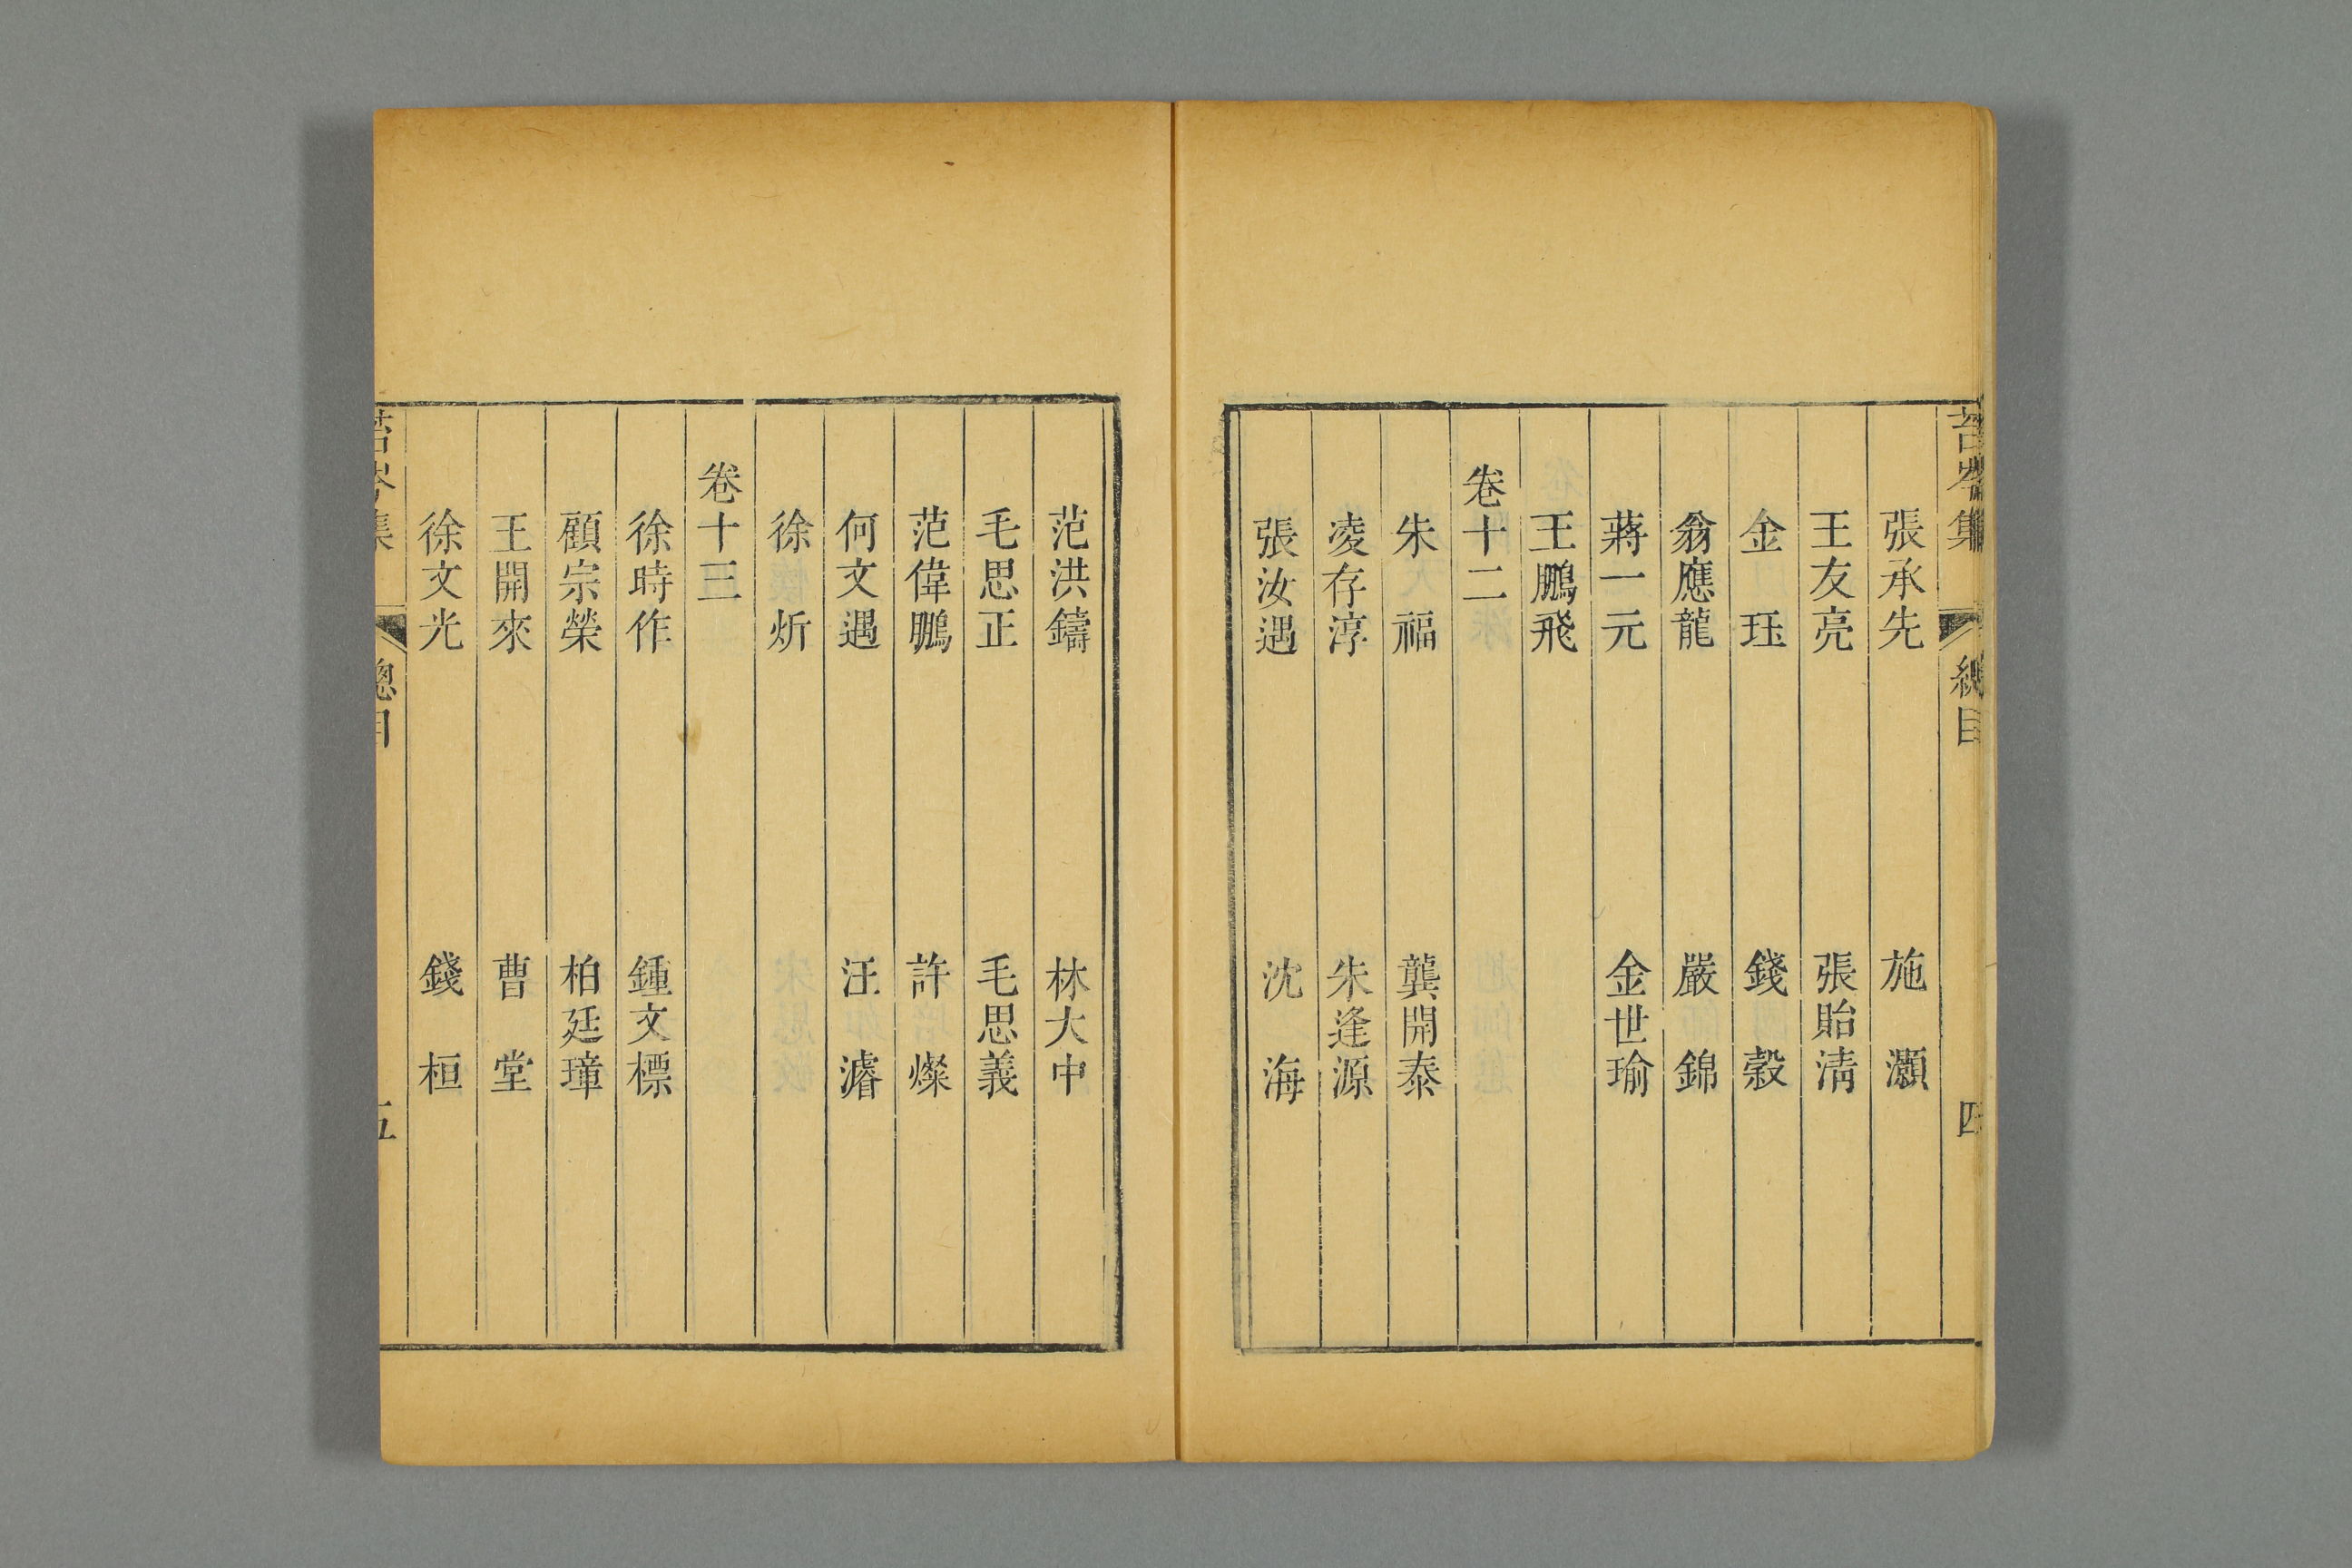 苔岑集 總目 四
張承先 施灝
王友亮 張貽清
金珏 錢穀
翁應龍 嚴錦
蔣一元 金世瑜
王鵬飛
卷十二
朱福 龔開泰
凌存淳 朱逢源
張汝遇 沈海
范洪鑄 林大中
毛思正 毛思義
范偉鵬 許燦
何文遇 汪濬
徐炘
卷十三
徐時作 鍾文標
顧宗榮 柏廷瑋
王開來 曹堂
徐文光 錢桓
苔岑集 總目 五